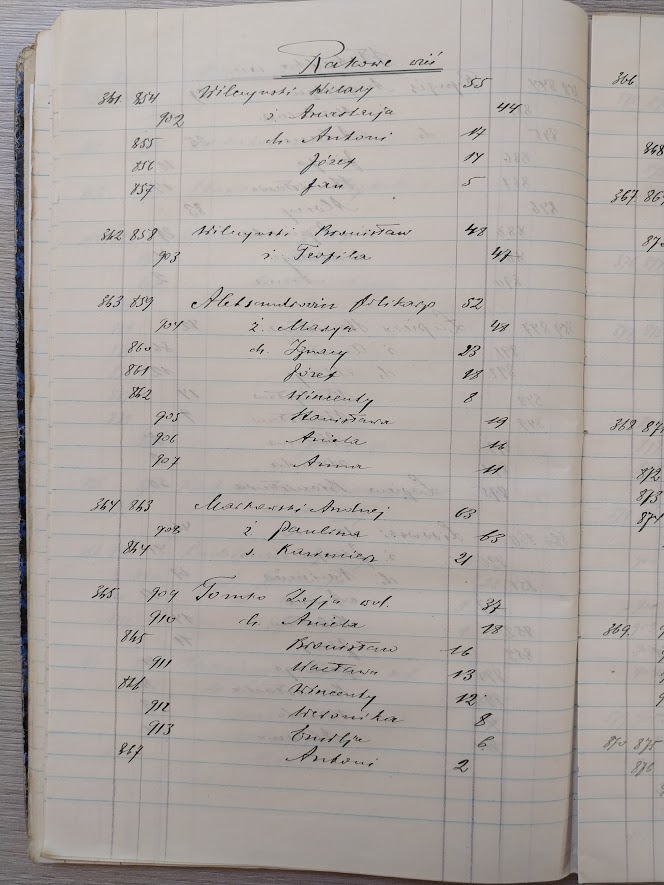 Rakowo wieś
361 854 Wilczynski Wilary 55
902 ż Anastazja 44
855 ch. Antoni 17
856 Józef 14
857 Jan 5
362 858 Wilczynski Bronisław 48
903 ż Teofila 47
363 859 Aleksandrowicz Polikarp 52
904 ż. Marya 48
860 ch. Ignacy 23
861 Józef 18
862 Wincenty 8
905 Stanisława 19
906 Aniela 16
907 Anna 11
364 863 Markowski Andrzej 63
908 ż Paulina 63
864 s. Kazimierz 21
365 909 Tomko Zofja wd. 37
910 ch. Aniela 18
865 Bronisław 16
911 Wacława 13
866 Wincenty 12
912 Weronika 8
913 Emilja 6
867 Antoni 2
366
868
367
368
872
873
874
369
870 875
876